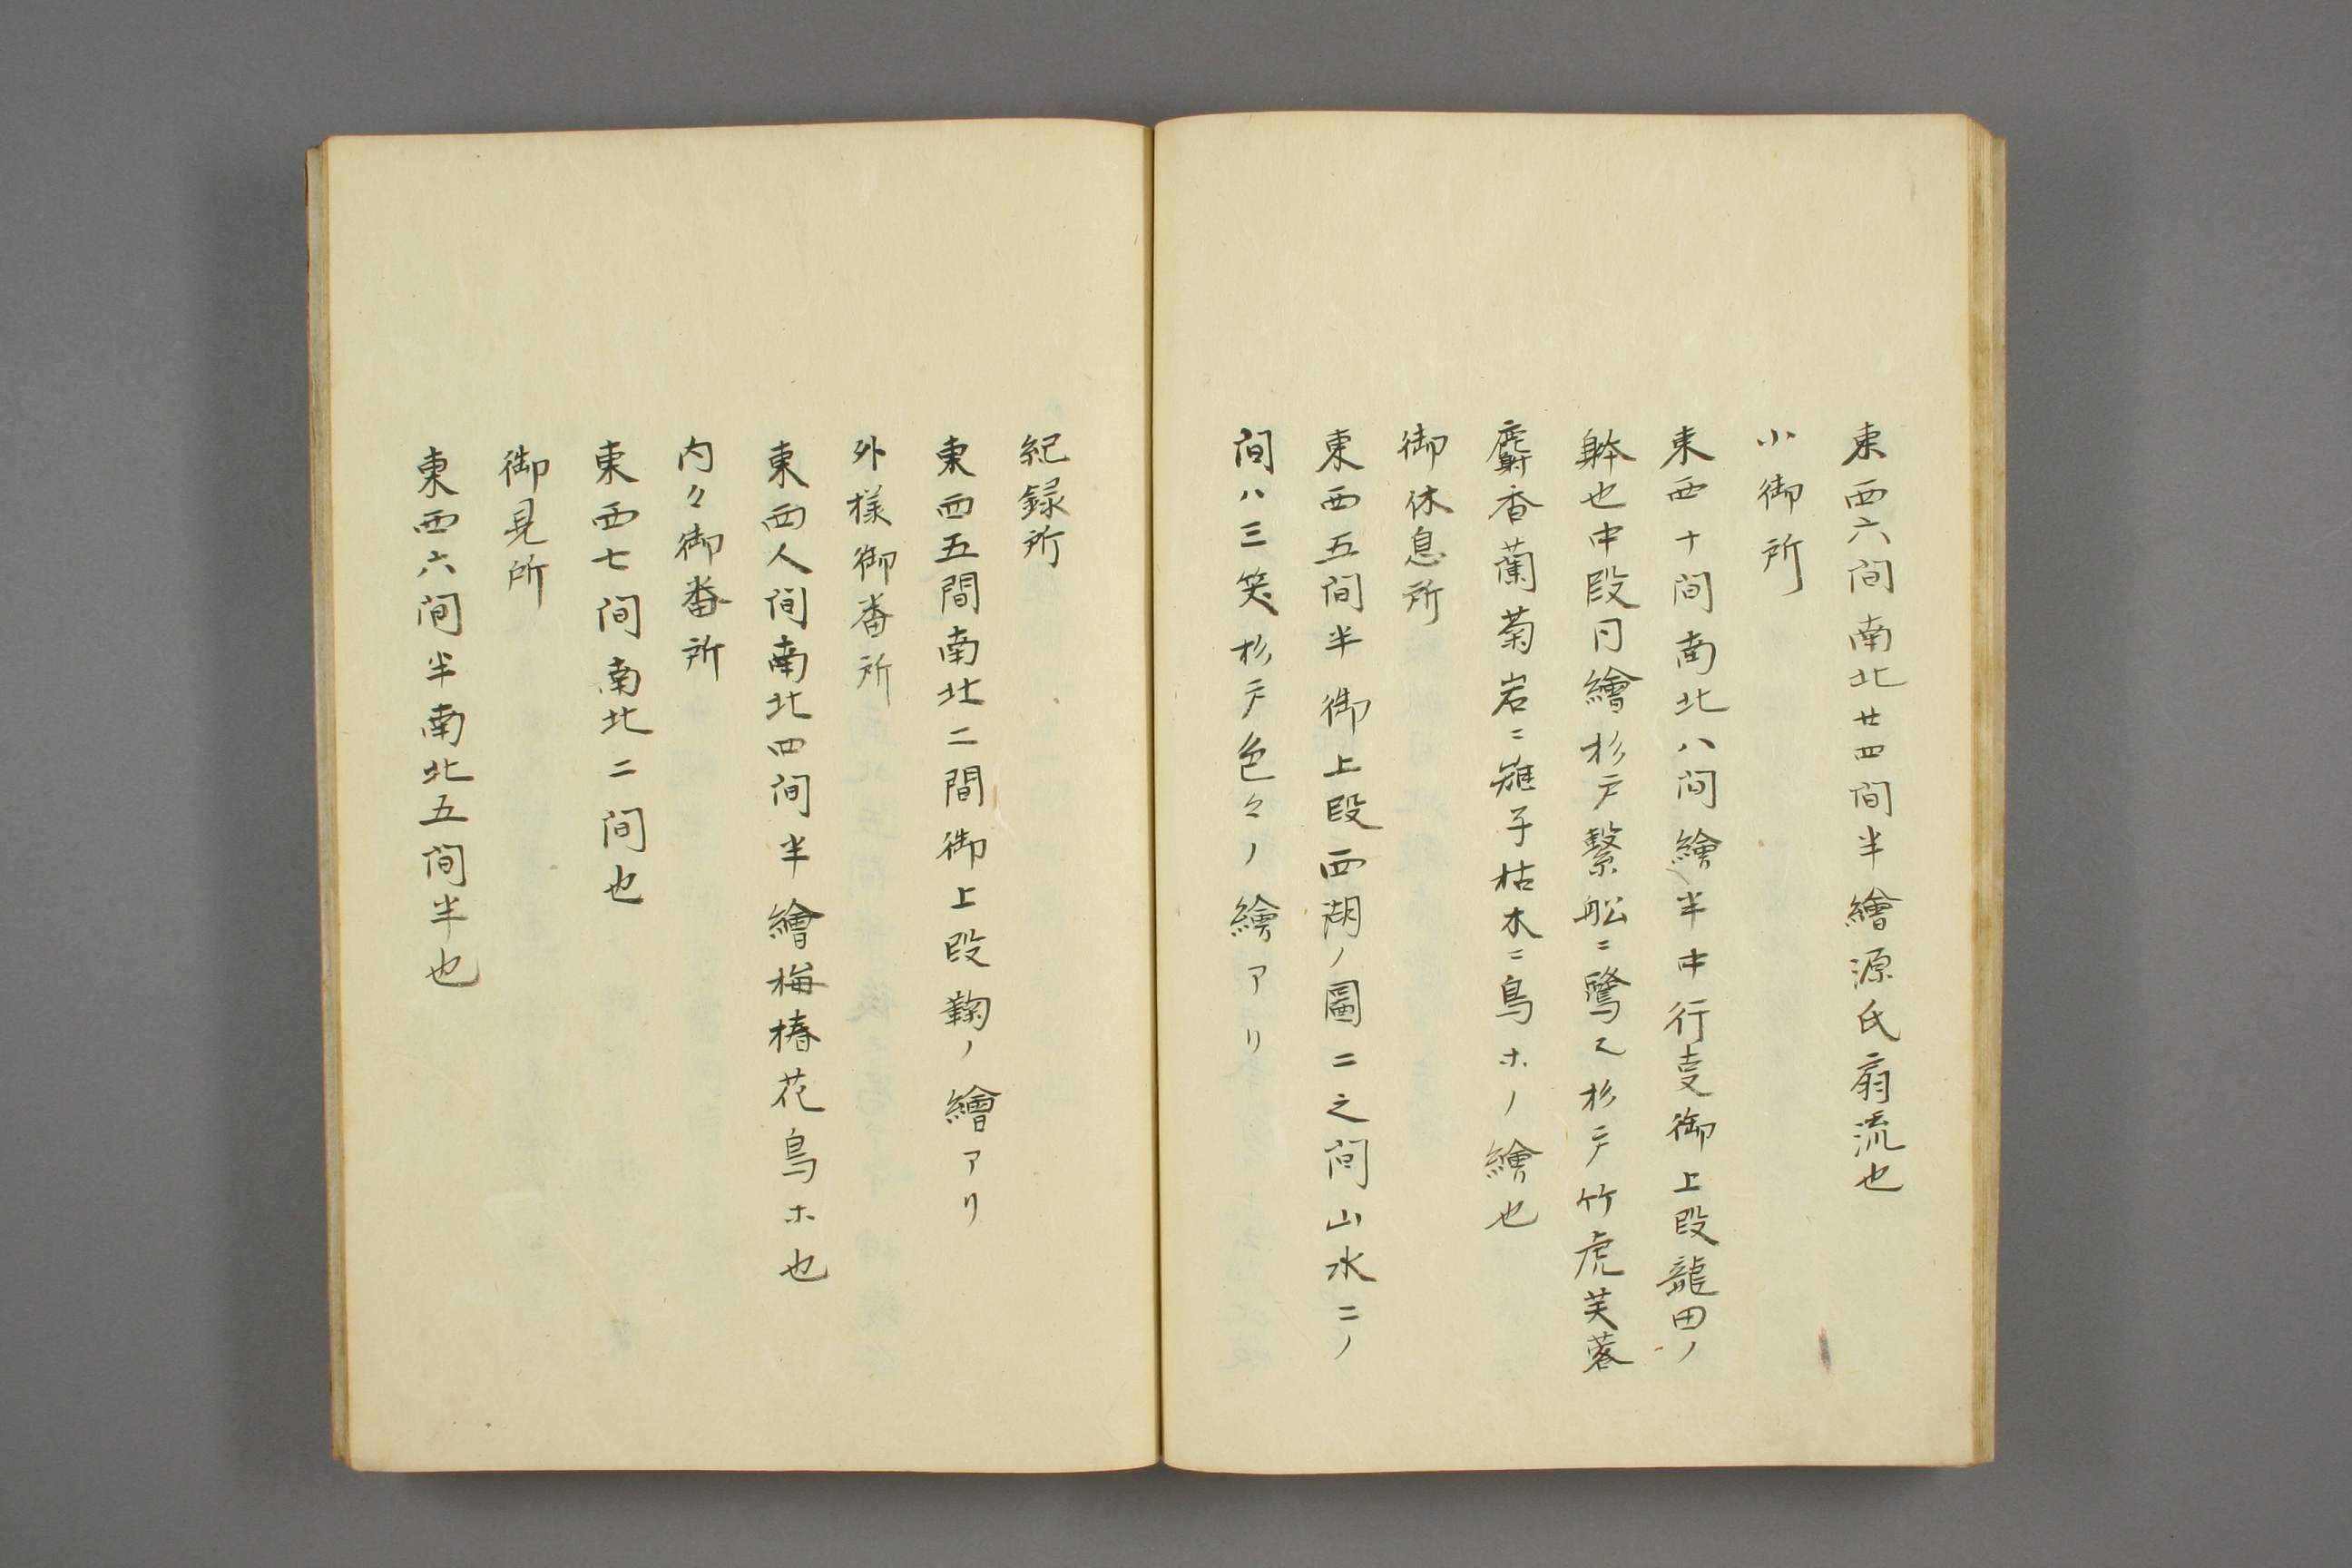 東西六间南北廿四间半繪源氏扇流也
小御所
東西十间南北八间繪半中行叓御上段龍田ノ
躰也中段同繪杉戸繋舩ニ鷺又杉戸竹虎芙蓉
麝香蘭菊岩ニ雉子枯木ニ鳥ホノ繪也
御休息所
東西五间半御上段西湖ノ圖二之间山水二ノ
间ハ三笑杉戸色々ノ繪アリ
紀録所
東西五間南北二間御上段鞠ノ繪アリ
外様御番所
東西人间南北四间半繪梅椿花鳥ホ也
内々御番所
東西七间南北二间也
御見所
東西六间半南北五间半也